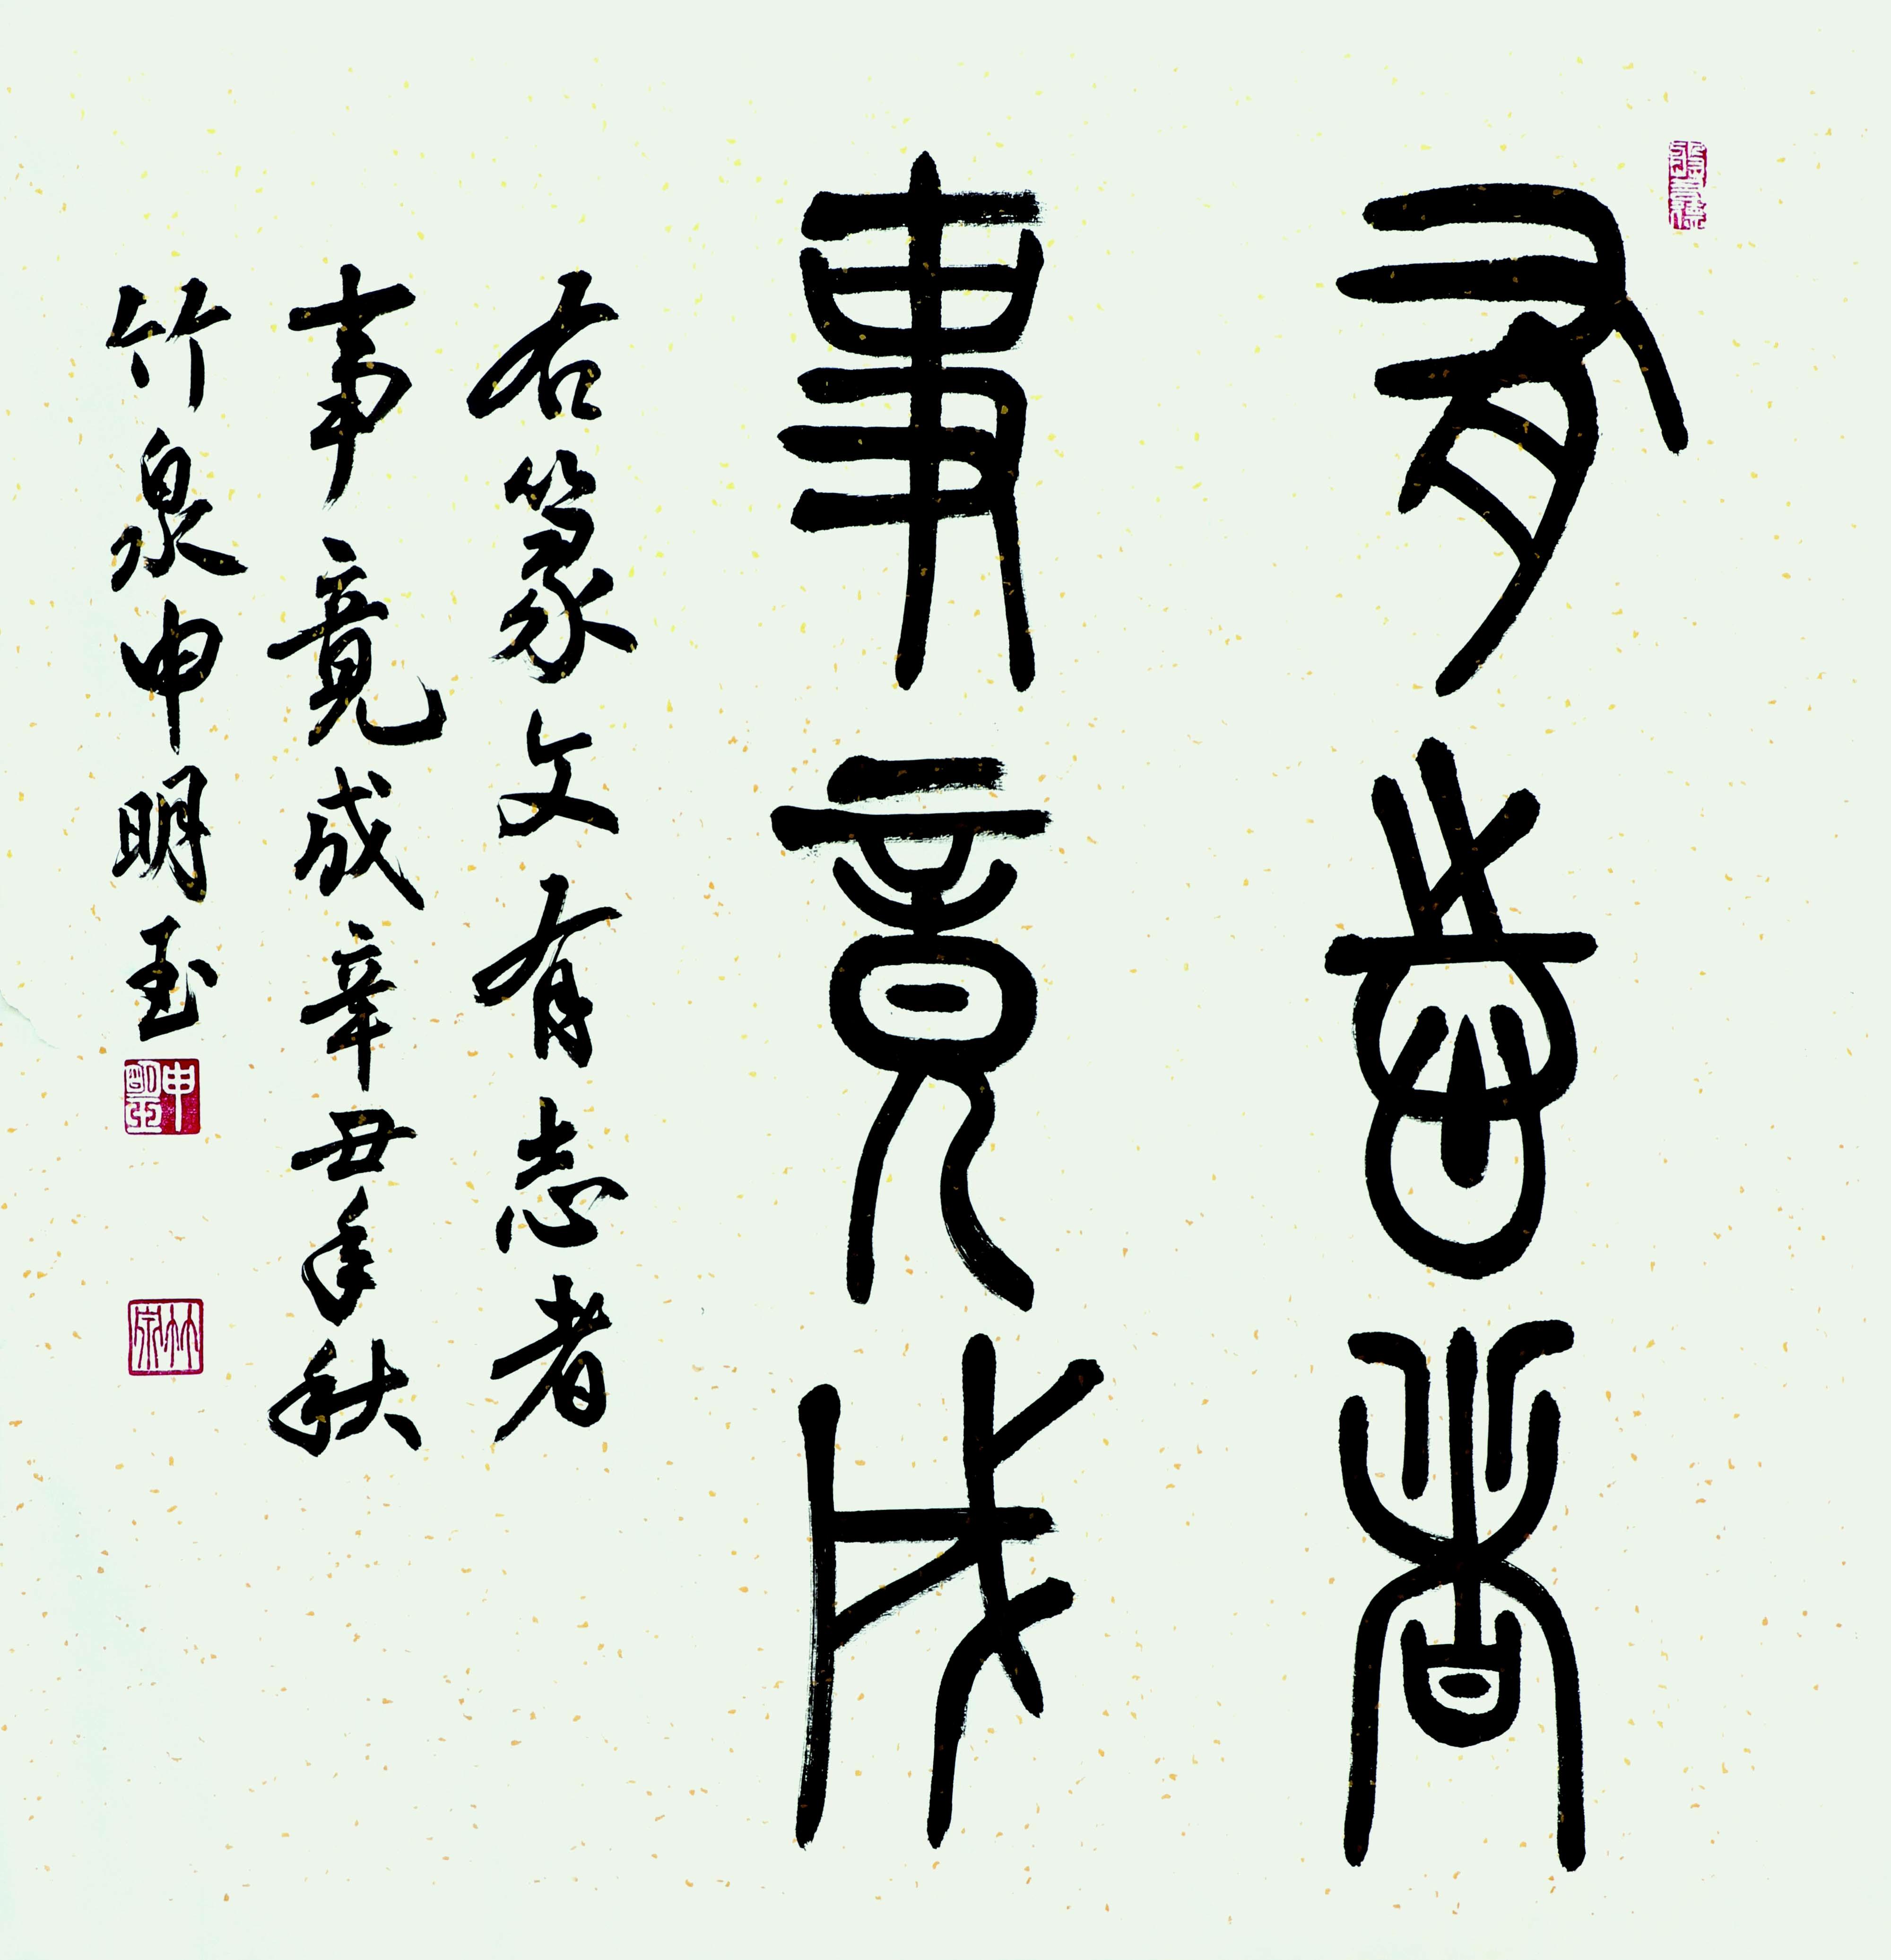 有志者
事竟成
右篆文有志者
事竟成辛丑年秋
竹泉申明玉
申明玉
竹泉